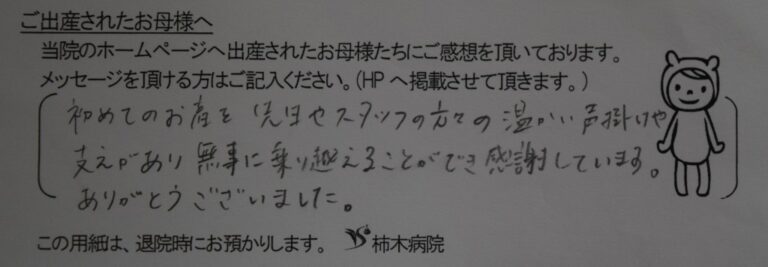 ご出産されたお母様へ
当院のホームページへ出産されたお母様たちにご感想を頂いております。
メッセージを頂ける方はご記入ください。(HPへ掲載させて頂きます。)
初めてのお産を先生やスタッフの方々の温かい声掛けや
支えがあり無事に乗り越えることができ感謝しています。
ありがとうございました。
この用紙は、退院時にお預かりします。 柿木病院